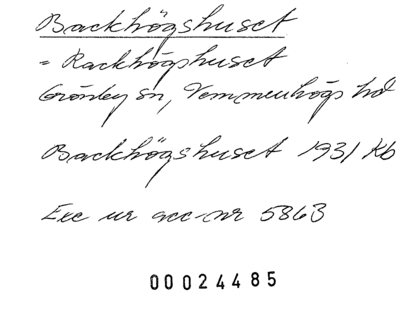 Backhögshuset
= Rackhögshuset
Grönby sn, Vemmenhögs hd
Backhögshuset 1931 Kb
Exc ur acc-nr 5863
00024485